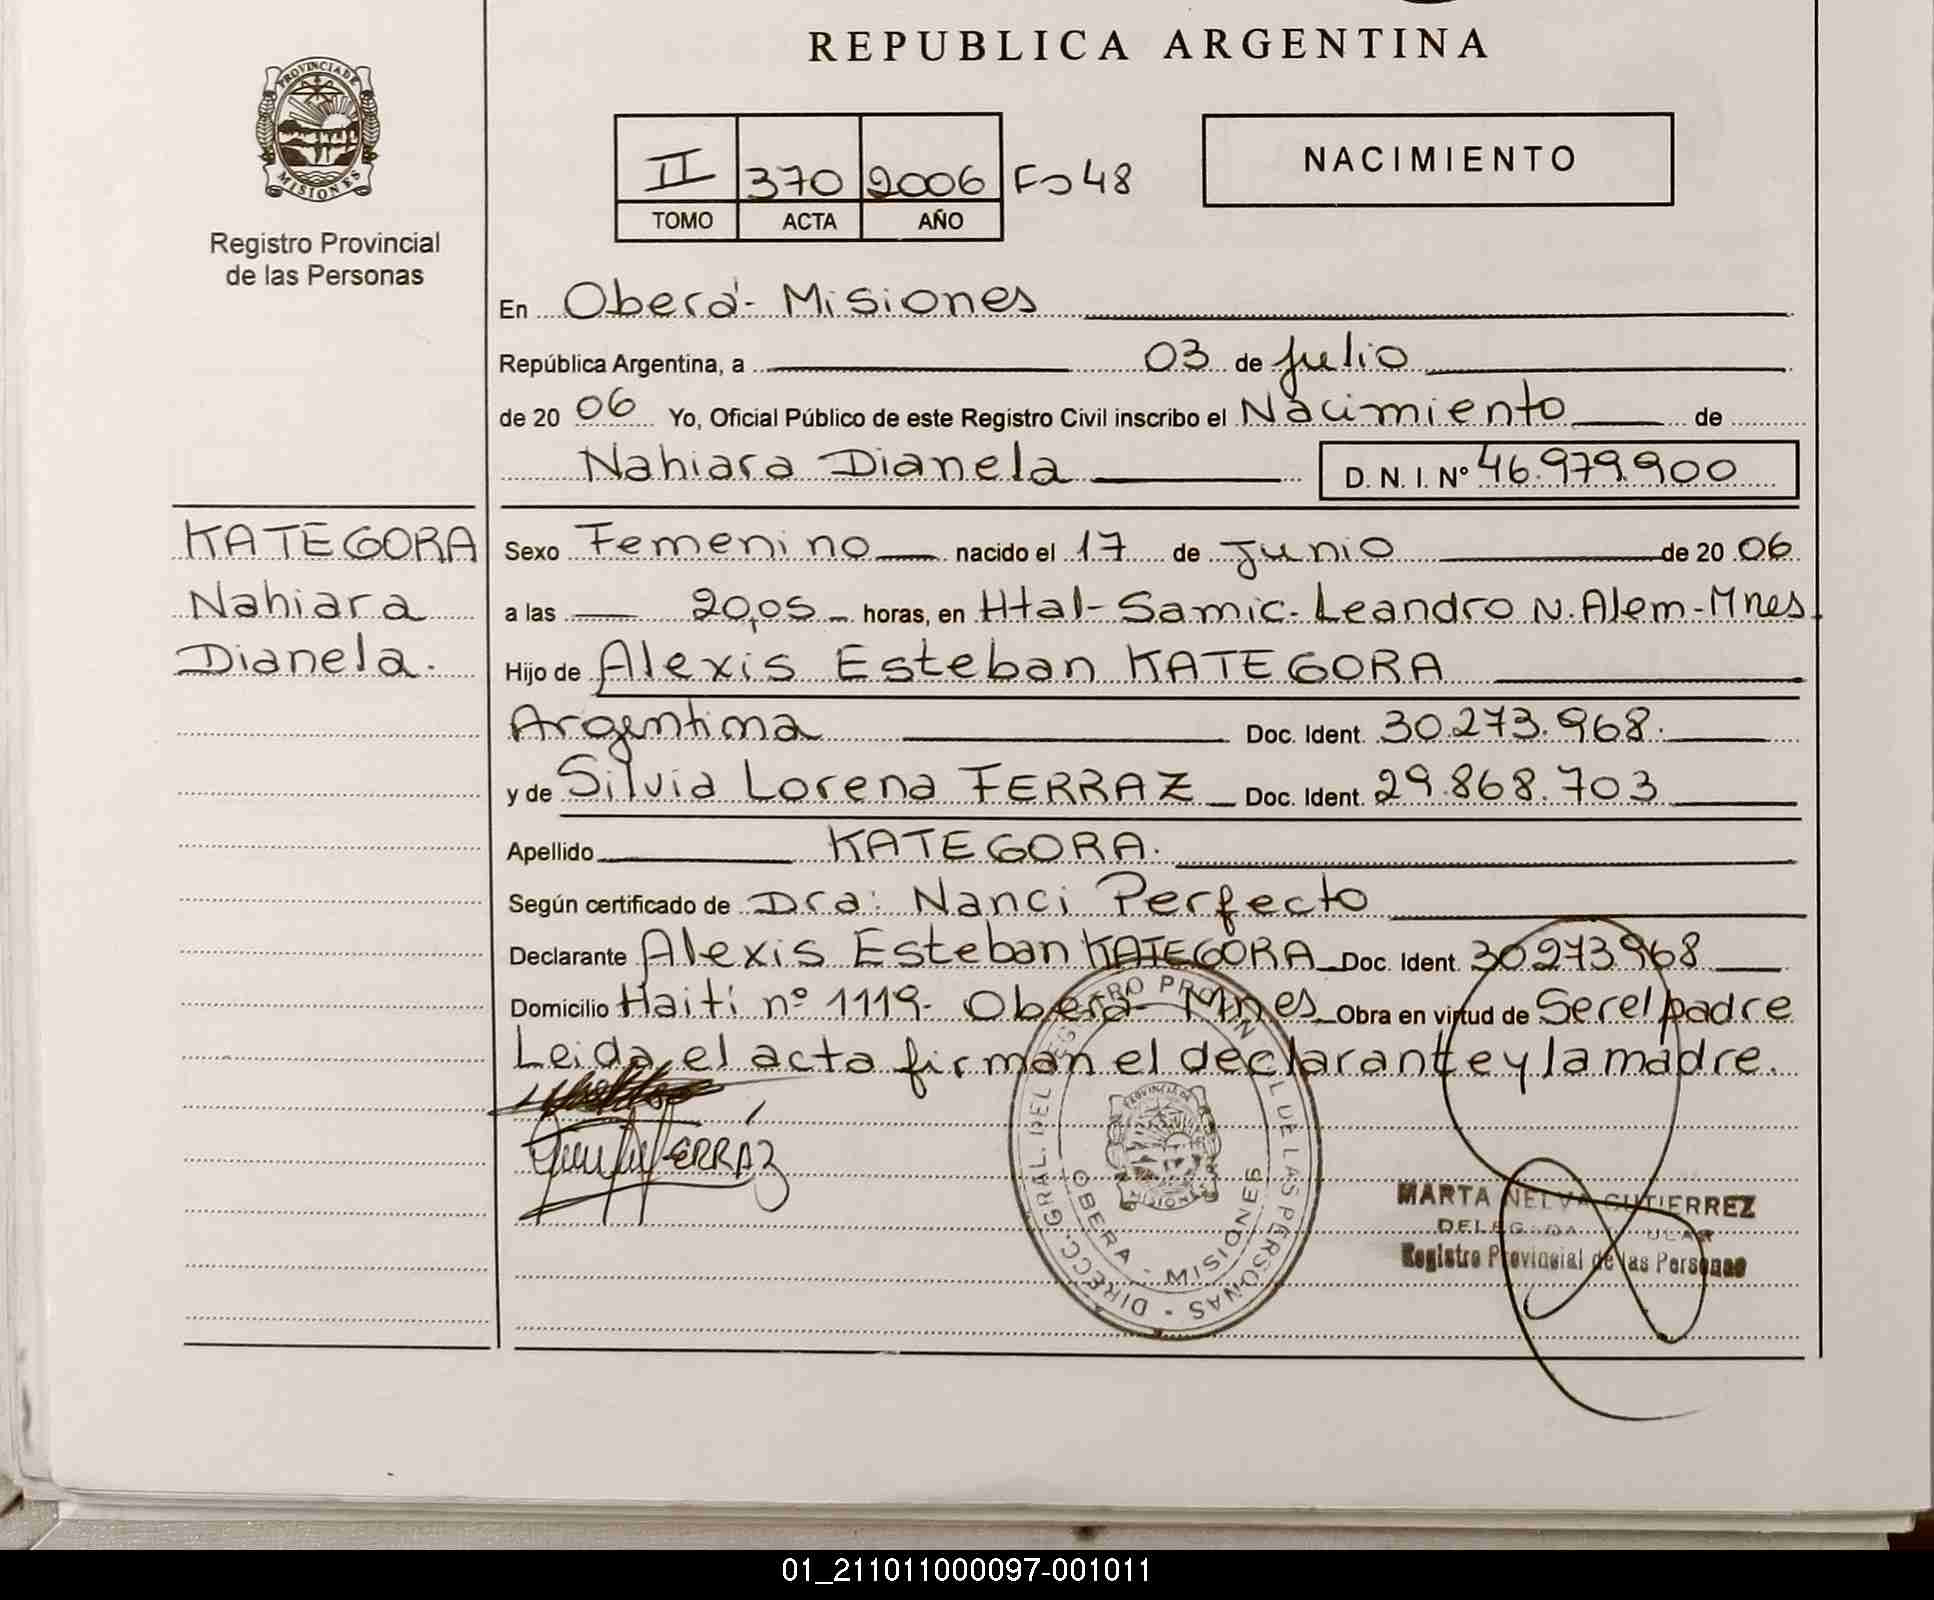 REPUBLICA ARGENTINA
PROVINCIA DE
MISIONES
Registro Provincial
de las Personas
II 370 2006 Fo 48
TOMO ACTA AÑO
NACIMIENTO
En Oberá - Misiones
República Argentina, a 03 de Julio
de 20 06 Yo, Oficial Público de este Registro Civil inscribo el Nacimiento de
Nahiara Dianela D. N. I. Nº 46.979.900
KATEGORA
Nahiara
Dianela.
Sexo Femenino nacido el 17 de Junio de 20 06
a las 20,05 horas, en Htal-Samic-Leandro N. Alem-Mnes
Hijo de Alexis Esteban KATEGORA
Argentina Doc. Ident. 30.273.968.
y de Silvia Lorena FERRAZ Doc. Ident. 29.868.703
Apellido KATEGORA.
Según certificado de Dra: Nanci Perfecto
Declarante Alexis Esteban KATEGORA Doc. Ident. 30273968
Domicilio Haití nº 1119- Oberá- Mnes Obra en virtud de Ser el padre
Leida el acta firman el declarante y la madre.
FERRÁZ
DIRECC. GRAL. DEL REGISTRO PROVINCIAL DE LAS PERSONAS -
PROVINCIA DE
MISIONES
OBERA - MISIONES
MARTA NELVA GUTIERREZ
DELEGADA TITULAR
Registro Provincial de las Personas
01_211011000097-001011